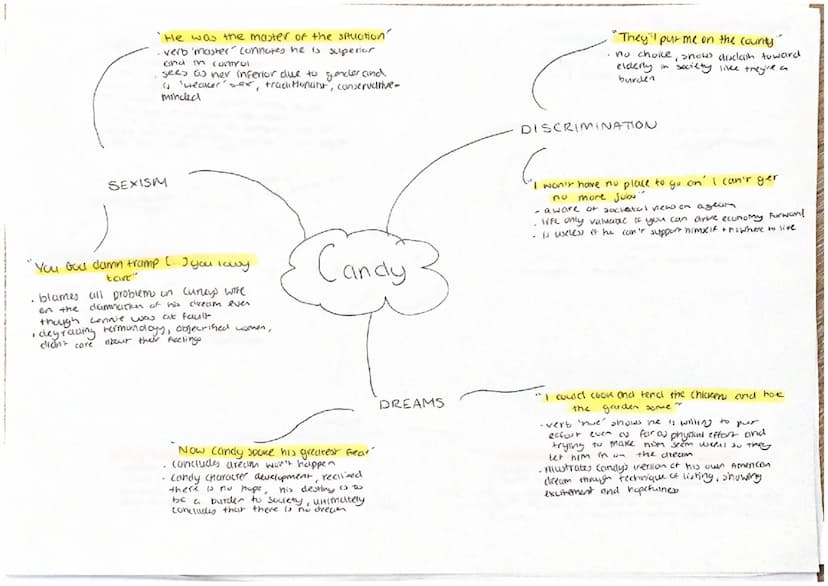 Candy
SEXISM
"He was the master of the situation"
· verb 'master' connotes he is superior
and in control
· sees as her inferior due to gender and
is 'weaker' sex, traditionalist, conservative-
minded
"You God damn tramp [...] you lousy
tart"
· blames all problems on Curley's wife
on the damnation of his dream even
though Lennie was at fault
· degrading terminology, objectified women,
didn't care about their feelings
DISCRIMINATION
"They'll put me on the county"
· no choice, shows disdain toward
elderly in society like they're a
burden
"I won't have no place to go an' I can't get
no more jobs"
- aware of societal view on ageism
· life only valuable if you can drive economy forward
· is useless if he can't support himself + nowhere to live
DREAMS
"Now Candy spoke his greatest fear"
· concludes dream won't happen
· Candy character development, realised
there is no hope, his destiny is to
be a burden to society, ultimately
concludes that there is no dream
"I could cook and tend the chickens and hoe
the garden some"
· verb 'hoe' shows he is willing to put
effort even as far as physical effort and
trying to make him seem useful so they
let him in on the dream
· illustrates Candy's version of his own American
dream through technique of listing, showing
excitement and hopefulness